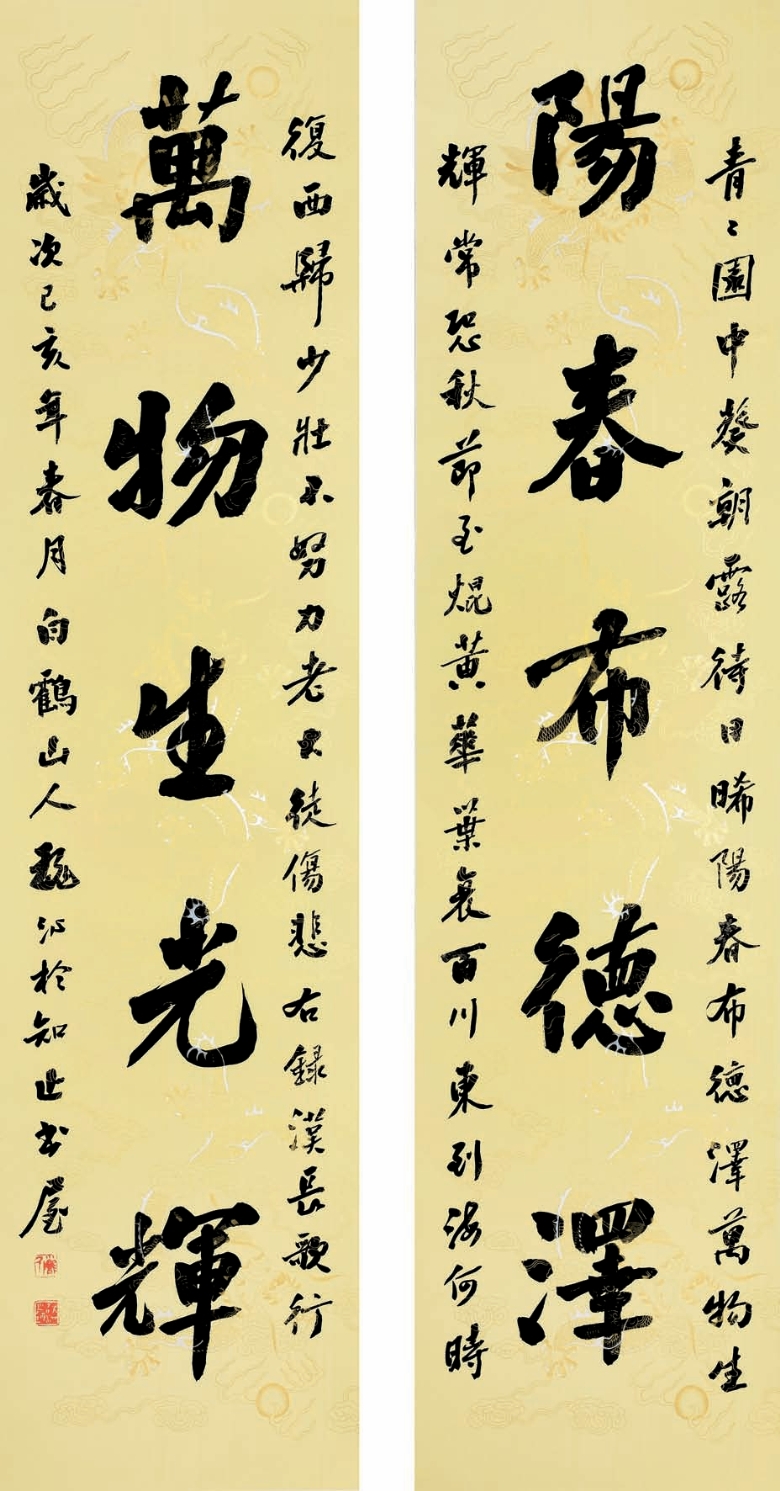 青〻園中葵朝露待日晞陽春布德澤萬物生
陽春布德澤
輝常恐秋節至焜黃華葉衰百川東到海何時
復西歸少壯不努力老大徒傷悲右録漢長歌行
萬物生光輝
歲次己亥年春月白鶴山人魏於知止书屋